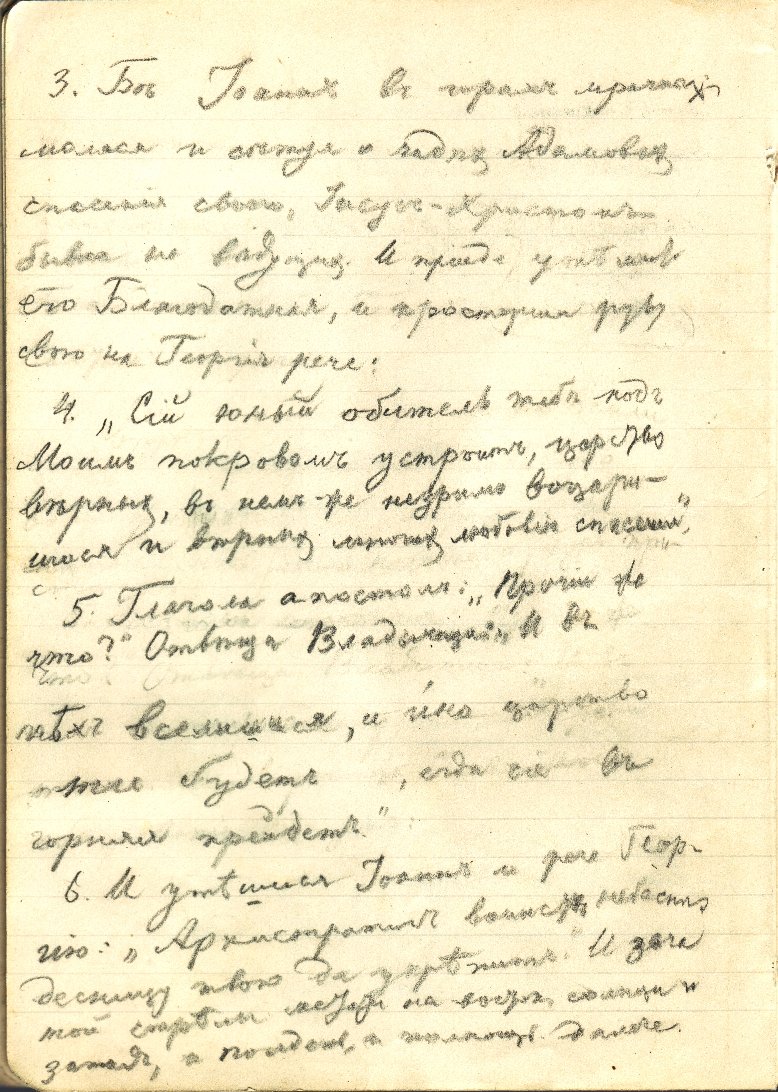 3. Бѣ Іоаннъ въ горахъ мрачнах
молася и сѣтуя о чадѣхъ Адамовых
спасенія своего, Іисусъ-Христомъ
бывша не вѣдущих. И прiиде утѣшит
его Благодатная, и простерши руку
свою на Георгія рече:
4. „Сій юный обитель тебѣ подъ
Моимъ покровомъ устроитъ, царство
вѣрных, въ немъ-же незримо воцари-
шася и вѣрных многих любовію спасеши".
5. Глагола апостолъ: „Прочіи же
что?" Отвѣща Владычица: „И въ
нѣхъ вселишися, и ино царство
тѣм будетъ, егда сіе въ
горняя прейдетъ."
6. И утѣшися Іоаннъ и рече Геор-
гію: „Архистратигъ воинствъ небесных
десницу твою да укрѣпитъ." И зача
той стрѣлы метати на востокъ солнца и
западъ, и полдень, и полнощь далече.